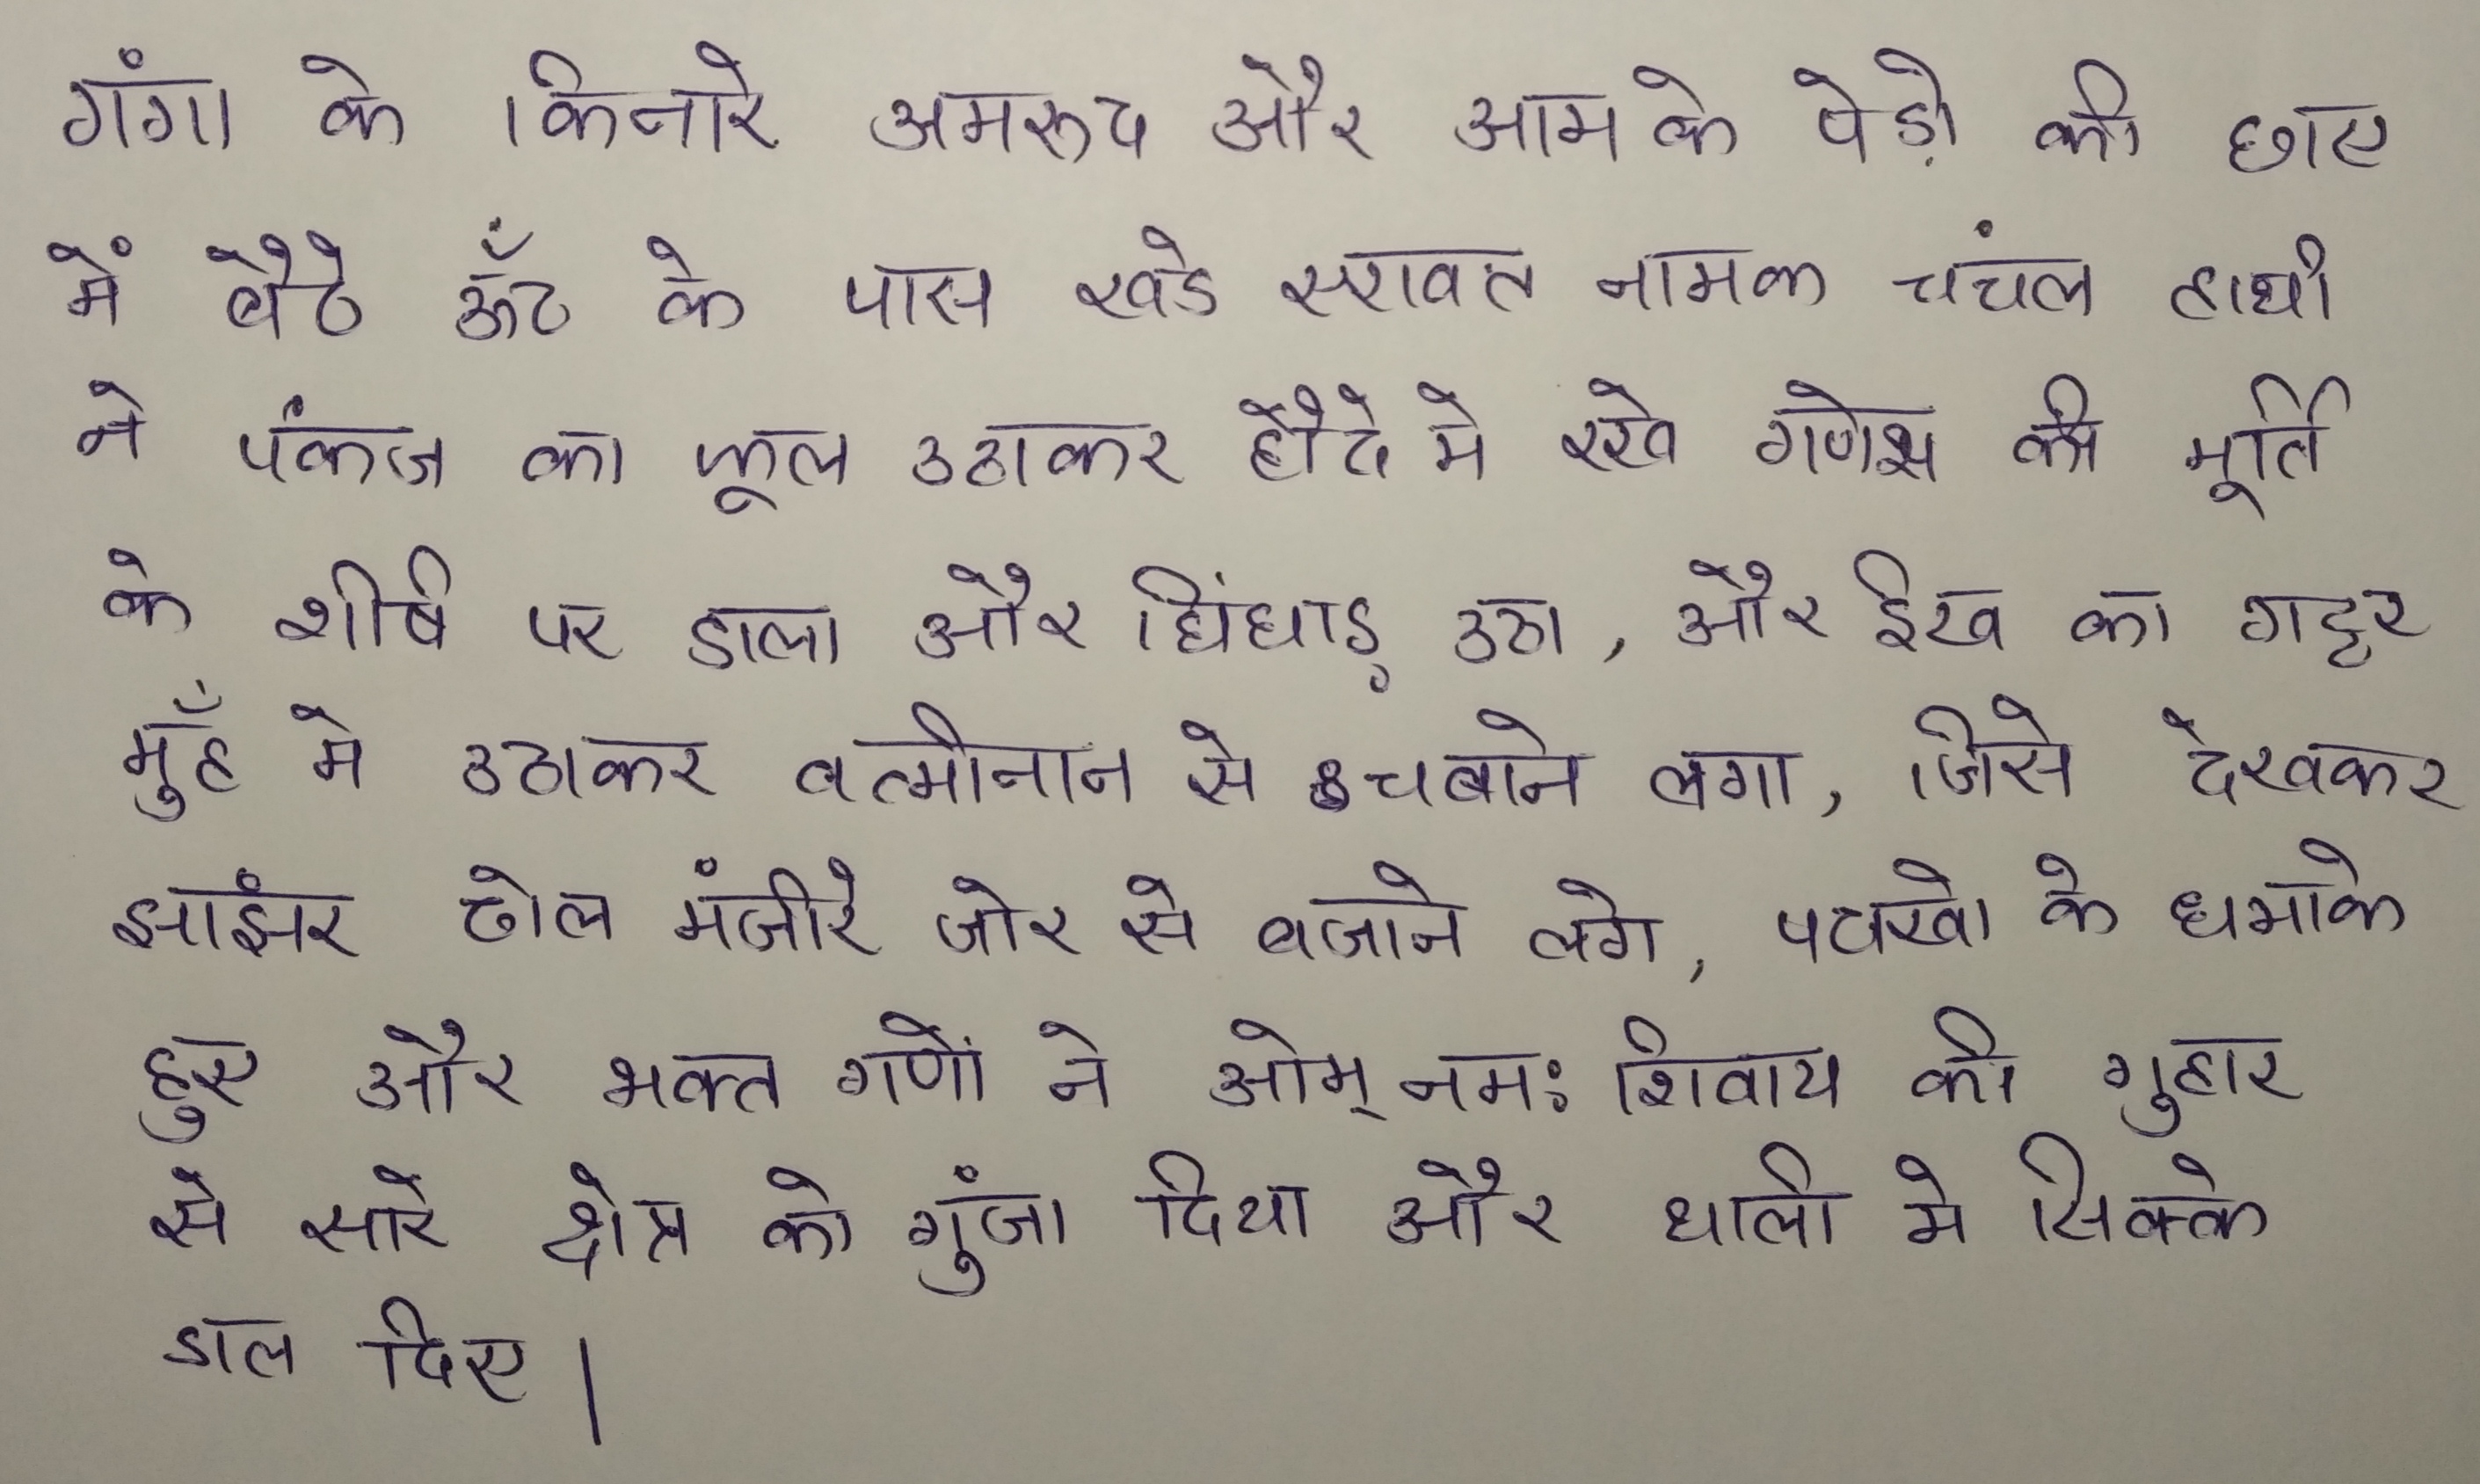 गंगा के किनारे अमरूद और आम के पेड़ो की छाए
में बैठे ऊँट के पास खडे एरावत नामक चंचल हाथी
ने पंकज का फूल उठाकर हौदे मे रखे गणेश की मूर्ति
के शीर्ष पर डाला और चिंघाड़ उठा, और ईख का गट्टर
मुँह मे उठाकर इत्मीनान से चबाने लगा, जिसे देखकर
झांझर ढोल मंजीरे जोर से बजाने लगे, पटाखो के धमाके
हुए और भक्त गणों ने ओम् नमः शिवाय की गुहार
से सारे क्षेत्र को गुंजा दिया और थाली मे सिक्के
डाल दिए।